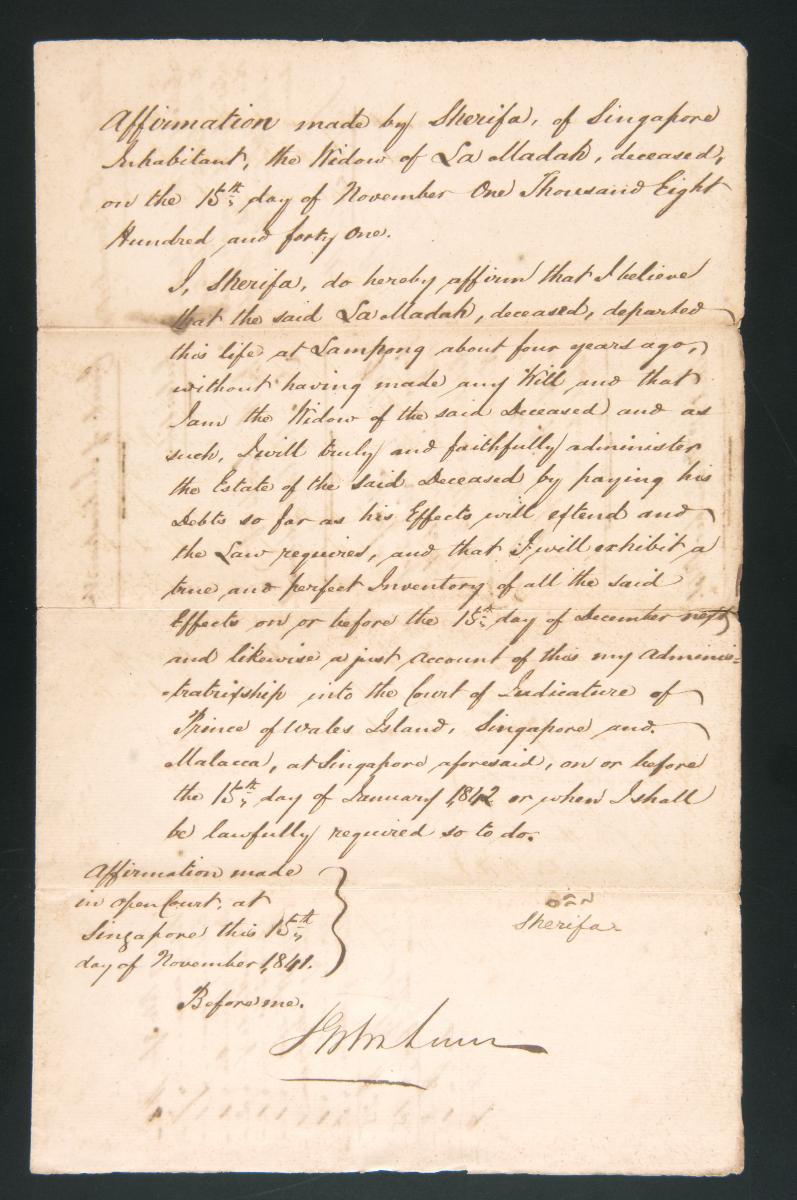 Affirmation made by Sherifa, of Singapore
Inhabitant, the Widow of La Madah, deceased,
on the 15th day of November One Thousand Eight
Hundred and forty One.
I, Sherifa, do hereby affirm that I believe
that the said La Madah, deceased, departed
this life at Lampong about four years ago,
without having made any Will and that
I am the Widow of the said Deceased and as
such, I will truly and faithfully administer
the Estate of the said Deceased by paying his
Debts so far as his Effects will extend and
the Law requires, and that I will exhibit a
true and perfect Inventory of all the said
Effects on or before the 15th day of December next
and likewise a just account of this my Adminis=
tratrixship into the Court of Judicature of
Prince of Wales Island, Singapore and
Malacca, at Singapore aforesaid, on or before
the 15th day of January 1842 or when I shall
be lawfully required so to do.
Affirmation made
in open Court, at
Singapore this 15th
day of November 1841.
Sherifa
Before me.